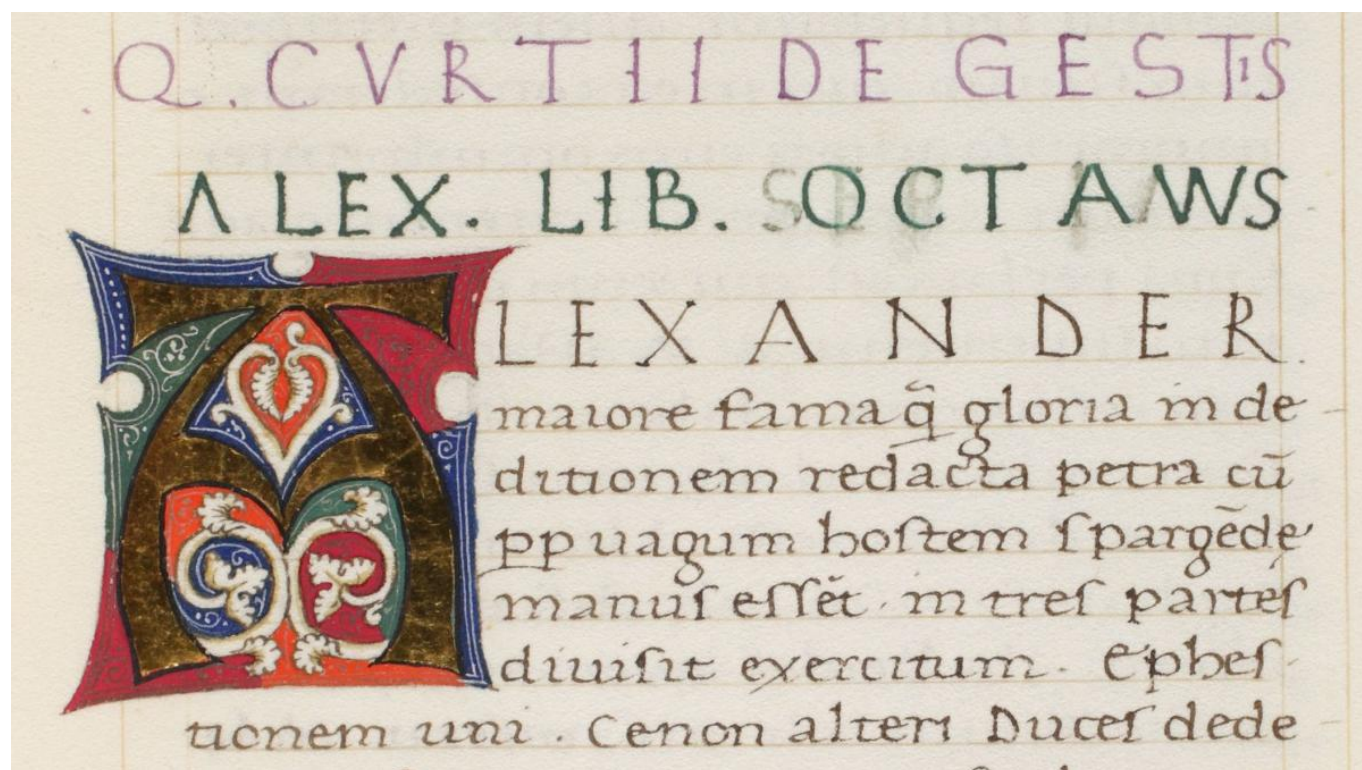 Q. CVRTII DE GESTIS
ALEX. LIB. OCTAVVS
ALEXANDER
maiore fama q̃ gloria in de
ditionem redacta petra cū
pp uagum hoſtem ſpargēde
manuſ eſſēt · in treſ parteſ
diuiſit exercitum · Epheſ
tionem uni · Cenon alteri Duceſ dede